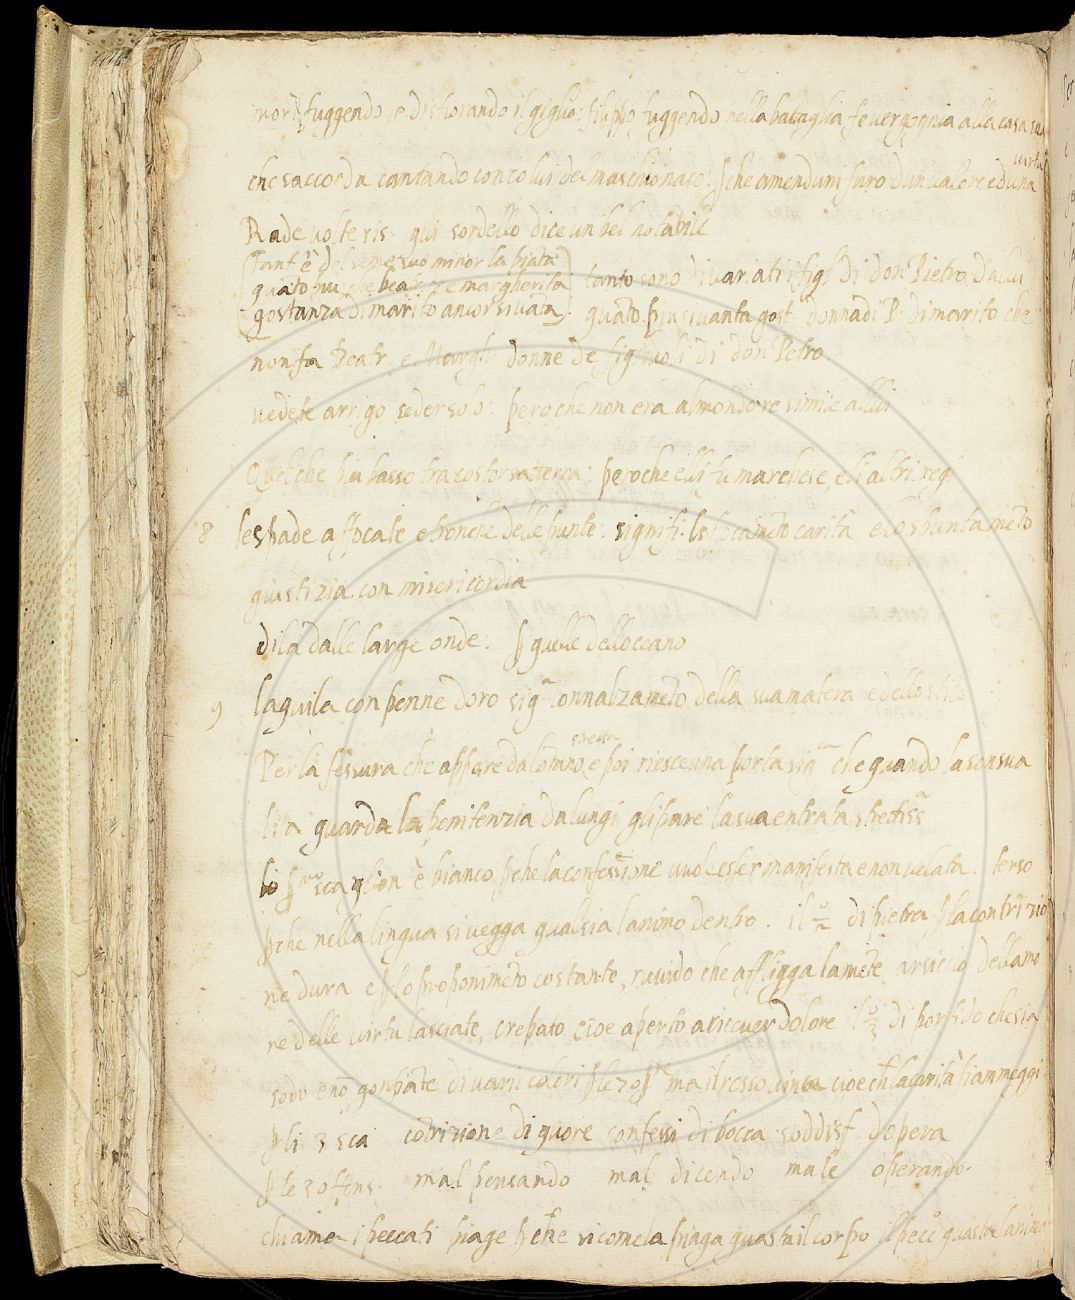 morì fuggendo, e disfiorando il giglio: filippo fuggendo nella battaglia fe vergogna alla casa sua
virtù
che saccorda cantando con colui del maschio naso: pche amendum furo dun valore e duna
Rade volte ris. qui sordello dice un bel notabile
Tant'è del seme suo minor la pianta
quato piu che beatrice e margherita tanto sono di variati i figl. di don Pietro da lui
gostanza di marito ancor si vanta: quato piu si vanta gost. donna di P. di marito che
non fa Beatr. e Margh. donne de figliuoli di don Petro.
vedete arrigo seder solo: pero che non era al mondo re simile a llui
Quel che piu basso tra costor satterra: peroche elli fu marchese, e li altri regi
8 le spade affocate e tronche delle punte: signifi. lo focameto carità e lo spuntameto
giustizia con misericordia
di là dalle large onde: p quelle delloceano
9 laquila con penne doro sigª lonnalzameto della sua matera e dello stilo
stretta
Per la fessura che appare da lotano, e poi riesce una porta sigª che quando la sensua
lita guarda la penitenzia da lungi gli pare la sua entrata strettissª
lo pmo scaglion è bianco pche la confessione vuol esser manifesta e non velata. terso
pche nella lingua si vegga qual sia lanimo dentro. il 2º di pietra p la contrizio
ne dura e p lo proponimeto costante, ruvido che affligga la mete arsiccio dellamo
re delle virtu lasciate, crepato cioe aperto a riceuer dolore il 3º di porfido che sia
sodo e nō
di varii colori ma il rosso vinca cioe ch la carità fiammeggi
p li 3 sca cotrizione di quore confessi di bocca soddisf. dopera
p le 3 offens. mal pensando mal dicendo male operando.
chiama i peccati piage pche sicome la piaga guasta il corpo il pecc guasta lanimo